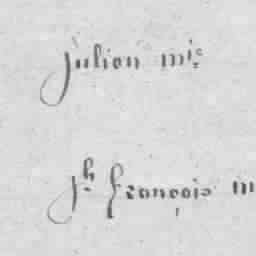 julien mi^e
j^h françois m